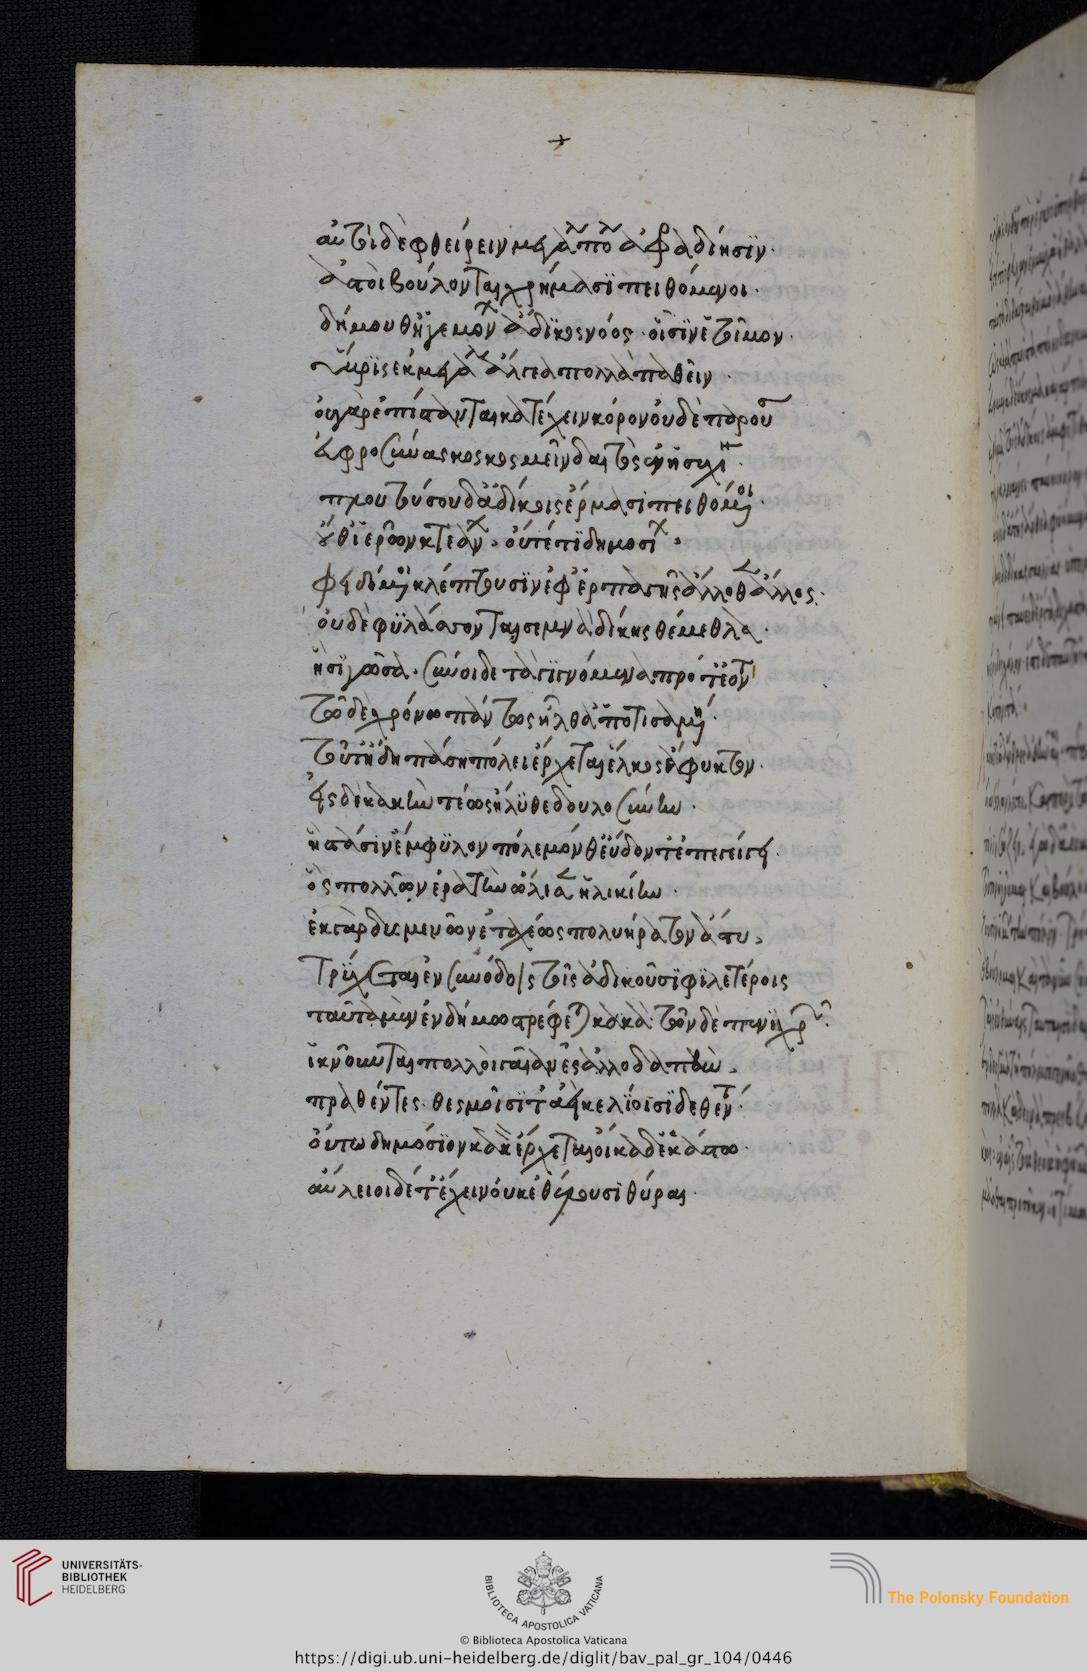 +
αὐτοὶ δὲ φθείρειν μεγάλην πόλιν ἀφραδίησιν.
ἀστοὶ βούλονται χρήμασι πειθόμενοι.
δήμου θ' ἡγεμόνων ἄδικος νόος. οἷσιν ἕτοιμον.
ὕβριος ἐκ μεγάλης ἄλγεα πολλὰ παθεῖν.
οὐ γὰρ ἐπίστανται κατέχειν κόρον οὐδὲ παρούσας
εὐφροσύνας κοσμεῖν δαιτὸς ἐν ἡσυχίῃ.
πλουτοῦσιν δ' ἀδίκοις ἔργμασι πειθόμενοι.
οὔθ' ἱερῶν κτεάνων. οὔτέ τι δημοσίων.
φειδόμενοι κλέπτουσιν ἐφ' ἁρπαγῇ ἄλλοθεν ἄλλος.
οὐδὲ φυλάσσονται σεμνὰ δίκης θέμεθλα.
ἣ σιγῶσα. σύνοιδε τὰ γιγνόμενα πρό τ' ἐόντα
τῷ δὲ χρόνῳ πάντως ἦλθ' ἀποτισαμένη.
τοῦτ' ἤδη πάσῃ πόλει ἔρχεται ἕλκος ἄφυκτον.
εἰς δὲ κακὴν ταχέως ἤλυθε δουλοσύνην.
ἣ στάσιν ἔμφυλον πόλεμόν θ' εὕδοντ' ἐπεγείρει.
ὃς πολλῶν ἐρατὴν ὤλεσεν ἡλικίην.
ἐκ γὰρ δυσμενέων ταχέως πολυήρατον ἄστυ.
τρύχεται ἐν συνόδοις τοῖς ἀδικοῦσι φιλετέροις
ταῦτα μὲν ἐν δήμῳ στρέφεται κακά. τῶν δὲ πενιχρῶν.
ἱκνοῦνται πολλοὶ γαῖαν ἐς ἀλλοδαπὴν.
πραθέντες. δεσμοῖσί τ' ἀεικελίοισι δεθέντες.
οὕτω δημόσιον κακὸν ἔρχεται οἴκαδ' ἑκάστῳ.
αὔλειοι δέ τ' ἔχειν οὐκ ἐθέλουσι θύραι.
UNIVERSITÄTS-
BIBLIOTHEK
HEIDELBERG
BIBLIOTECA APOSTOLICA VATICANA
The Polonsky Foundation
© Biblioteca Apostolica Vaticana
https://digi.ub.uni-heidelberg.de/diglit/bav_pal_gr_104/0446